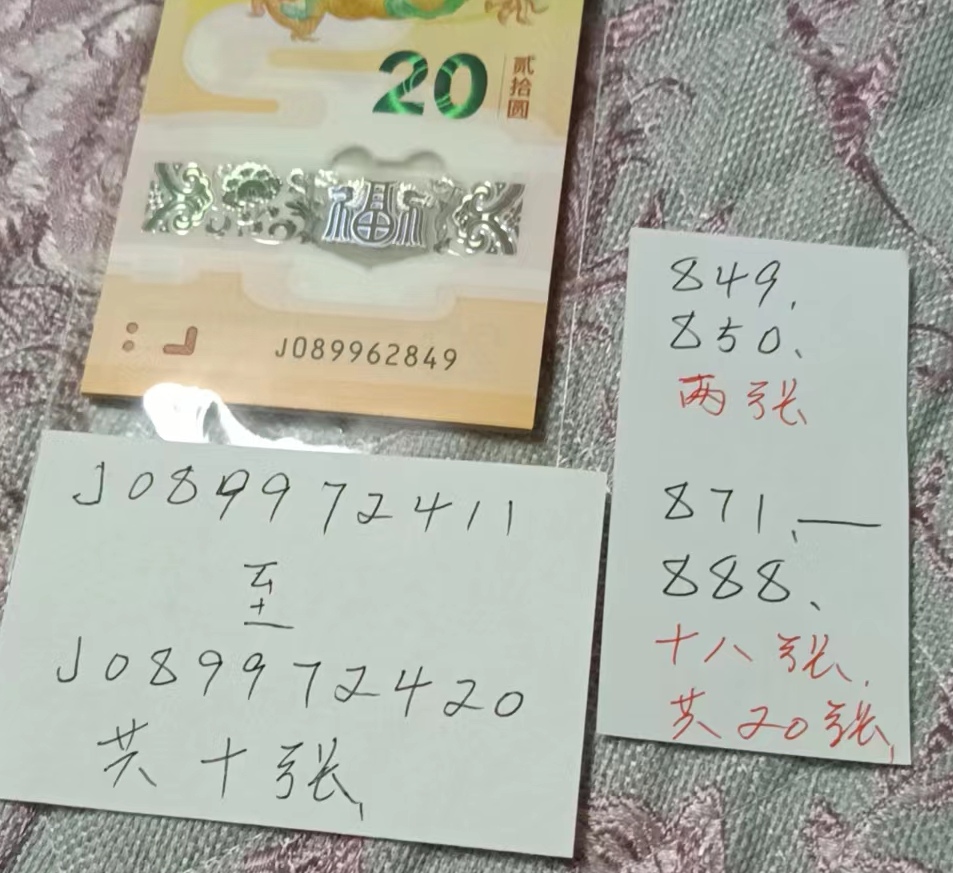 20
贰拾圆
福
J089962849
849、
850、
两张
871、—
888、
十八张、
共20张、
J089972411
至
J089972420
共十张、